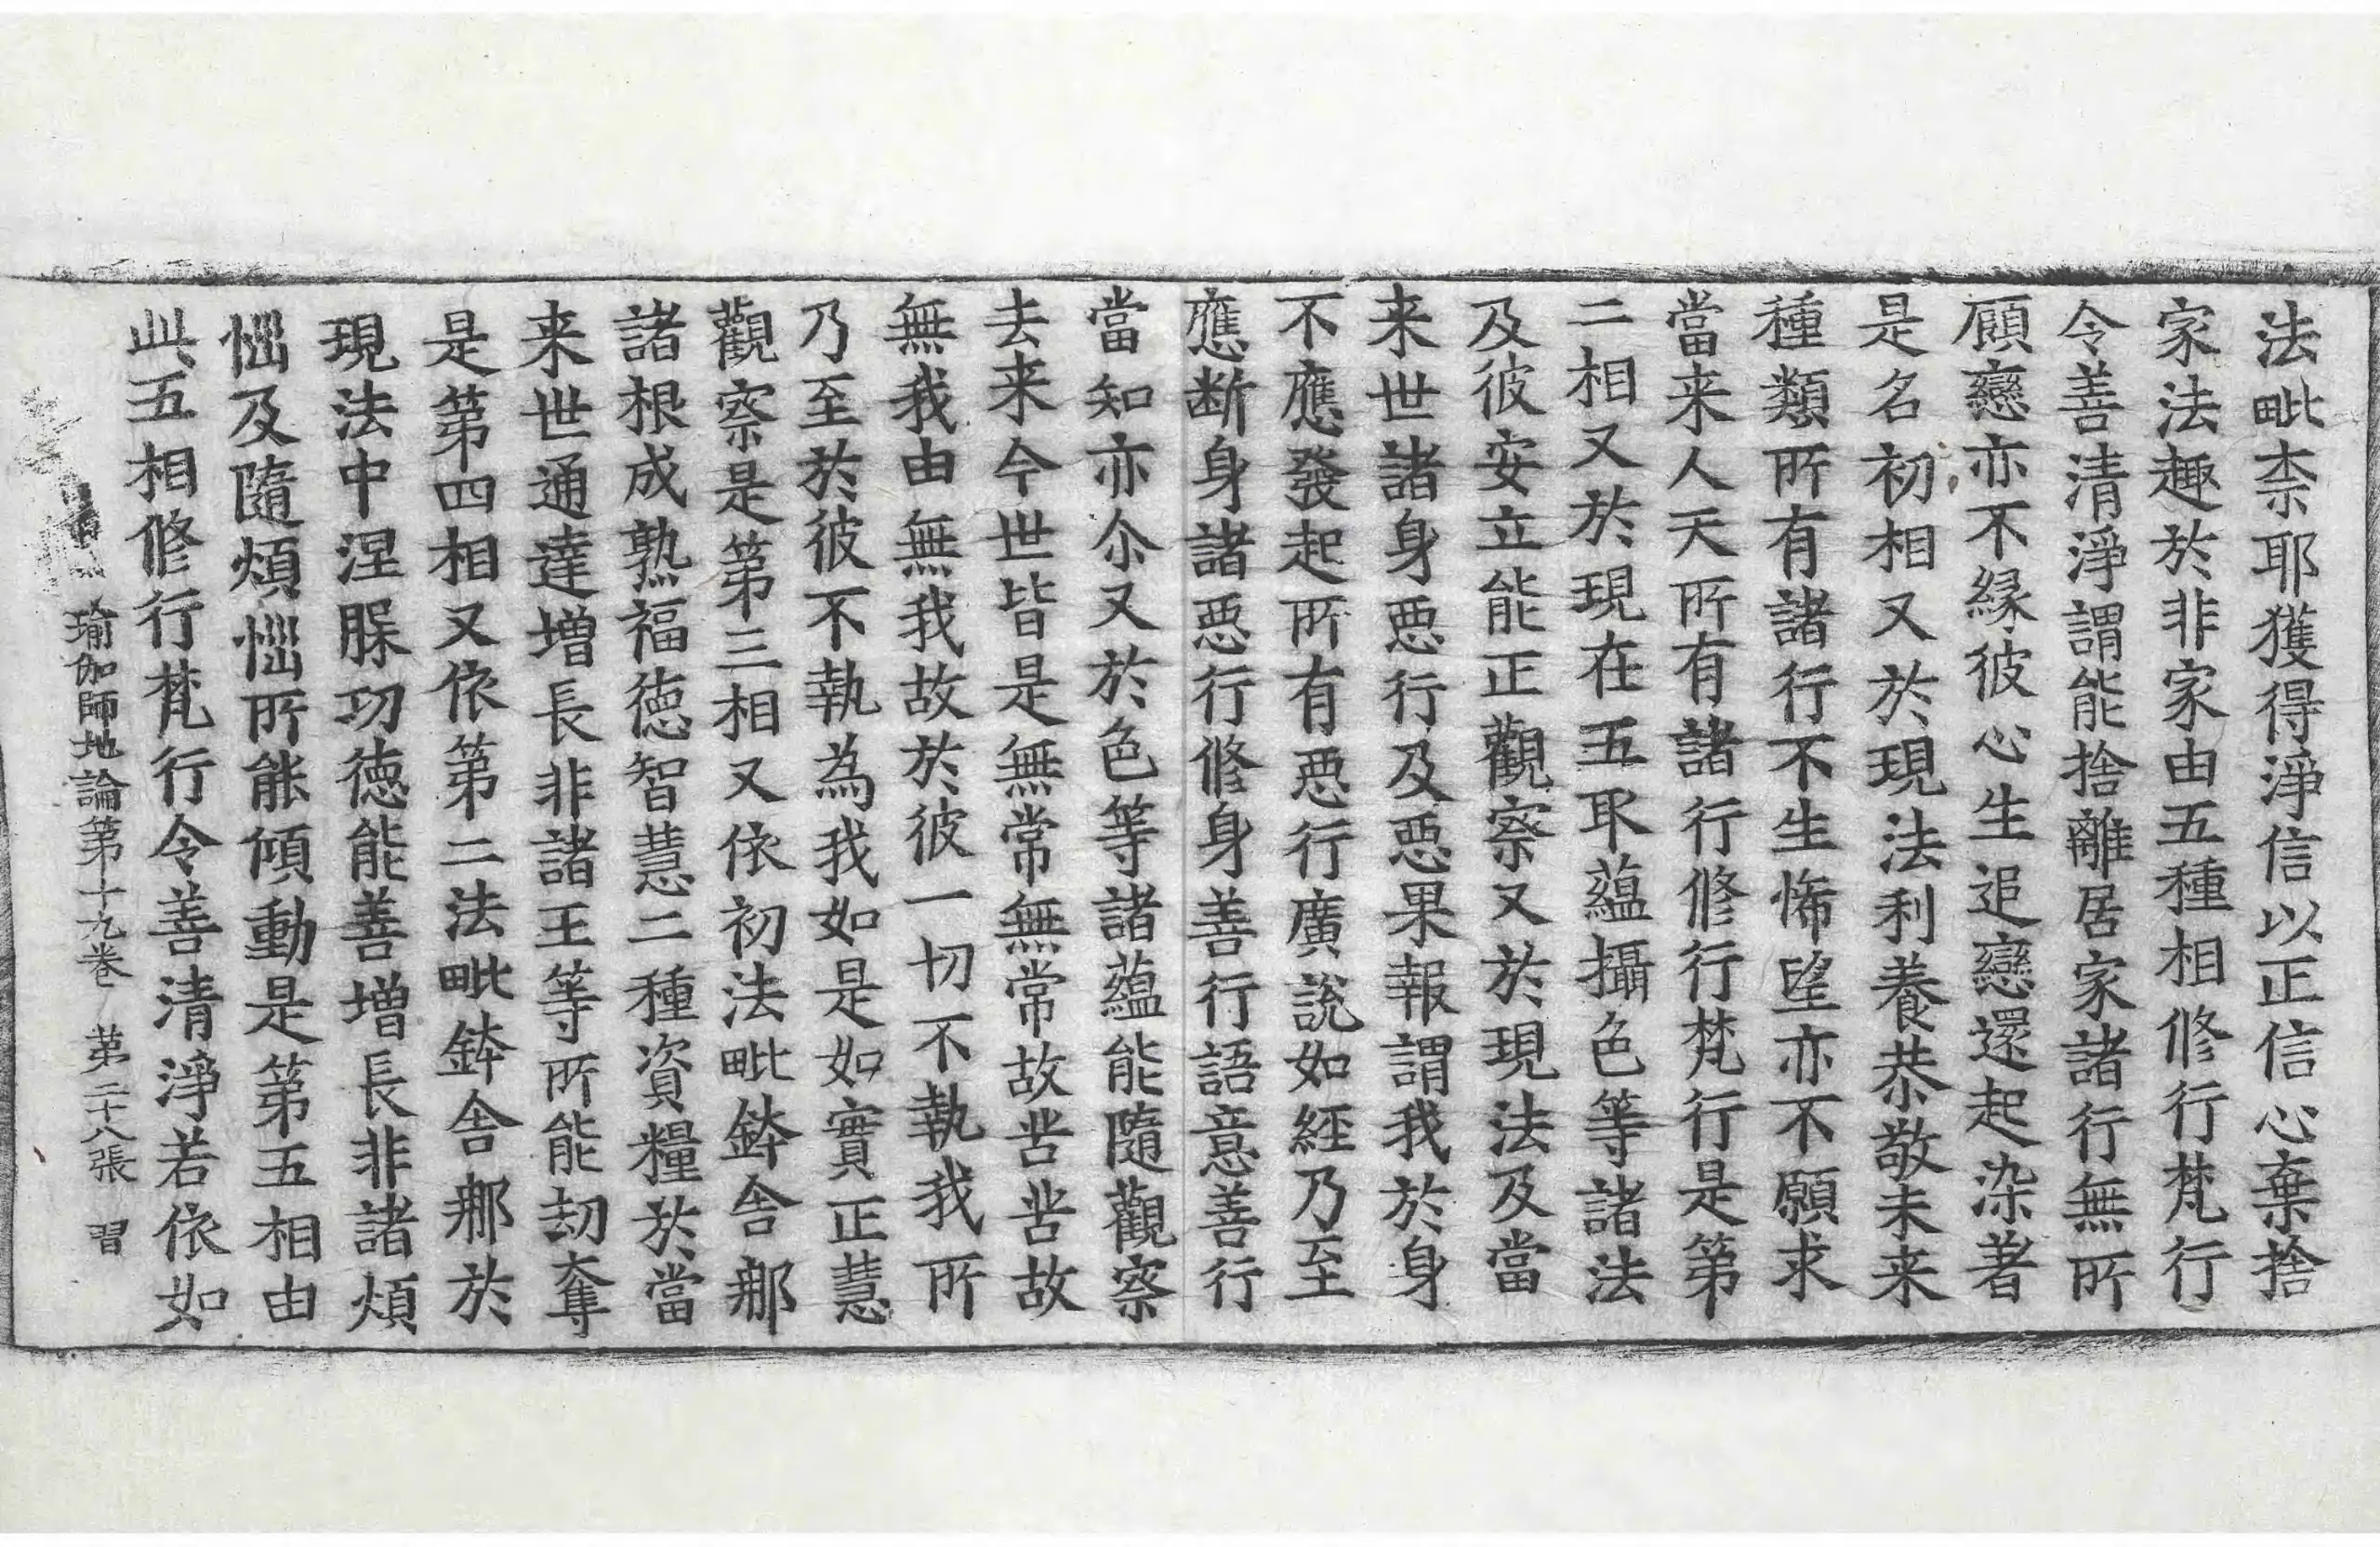 法毗柰耶獲得淨信以正信心棄捨
家法趣於非家由五種相修行梵行
令善清淨謂能捨離居家諸行無所
顧戀亦不緣彼心生追戀還起染著
是名初相又於現法利養恭敬未来
種類所有諸行不生悕望亦不願求
當来人天所有諸行修行梵行是第
二相又於現在五取蘊攝色等諸法
及彼安立能正觀察又於現法及當
来世諸身惡行及惡果報謂我於身
不應發起所有惡行廣說如經乃至
應断身諸惡行修身善行語意善行
當知亦尒又於色等諸蘊能隨觀察
去来今世皆是無常無常故苦苦故
無我由無我故於彼一切不執我所
乃至於彼不執為我如是如實正慧
觀察是第三相又依初法毗鉢舍那
諸根成熟福德智慧二種資糧於當
来世通達增長非諸王等所能劫奪
是第四相又依第二法毗鉢舍那於
現法中涅槃功德能善增長非諸煩
惱及隨煩惱所能傾動是第五相由
此五相修行梵行令善清淨若依如
瑜伽師地論第十九卷 第二十八張 習